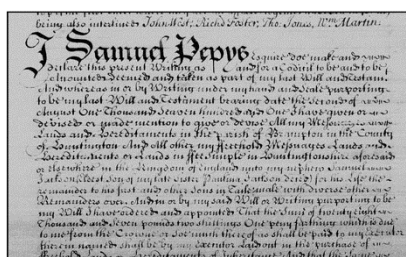 being also interlined John West: Richd: Foster; Tho: Jones, Wm: Martin:
I Samuel Pepys Esquire doe make and
declare this present Writing as and for a Codicil to be and to be
accounted deemed and taken as part of my last Will and Testamt.
And whereas in or by Writing under my hand and Seale purporting
to be my last Will and Testament bearing date the second of
August One Thousand Seven hundred and One I have given or
devised or made mention to give or devise All my Messuages
Lands and Hereditaments in the Parish of Brampton in the County
of Huntington And All other my ffreehold Messuages Lands and
Hereditaments or Lands in ffee simple in Huntingtonshire aforesaid
or elsewhere in the Kingdom of England unto my nephew Samuel
Jackson eldest son of my late sister Paulina Jackson decd for his life the
remainder to his first and other Sons in Tailemale with diverse other
Remainders over And in or by my said Will or Writing purporting to be
my Will I have ordered and appointed That the Summ of twenty Eight
Thousand and Seven pounds two shillings One peny farthing which is due
to me from the Crowne or soe much thereof as shall be paid to my Executor
therein named shall be by my Executor Laid out in the purchase of
ffreehold Lands Hereditaments of Inheritance And that the same